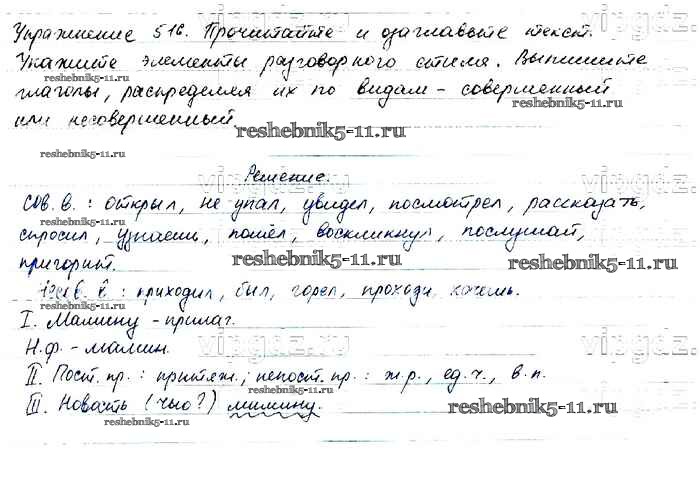 Упражнение 516. Прочитайте и озаглавьте текст.
Укажите элементы разговорного стиля. Выпишите
reshebnik5-11.ru
глаголы, распределяя их по видам - совершенный
или несовершенный.
reshebnik5-11.ru
reshebnik5-11.ru
vipgdz.ru
Решение.
сов. в. : открыл, не упал, увидел, посмотрел, рассказать,
спросил, узнаешь, пошёл, воскликнул, послушай,
пригорит.
reshebnik5-11.ru
reshebnik5-11.ru
в. : приходил, был, горел, проходи, хочешь.
I. Мамину - прилаг.
Н.ф. - мамин.
vipgdz.ru
II. Пост. пр. : притяж.; непост. пр. : ж.р., ед.ч., в.п.
III. Новость (чью?) мамину.
reshebnik5-11.ru
reshebnik5-11.ru